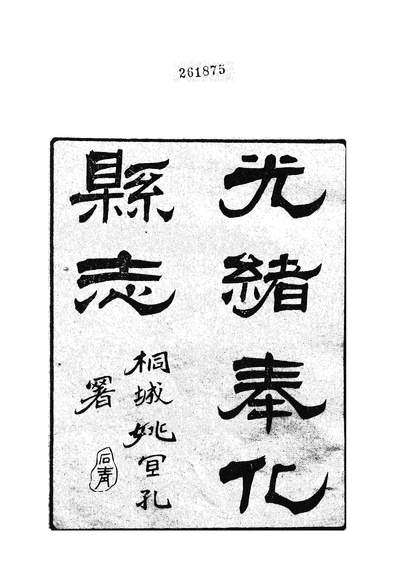 261875
光緒奉化
縣志
桐城姚宣孔
署
石青